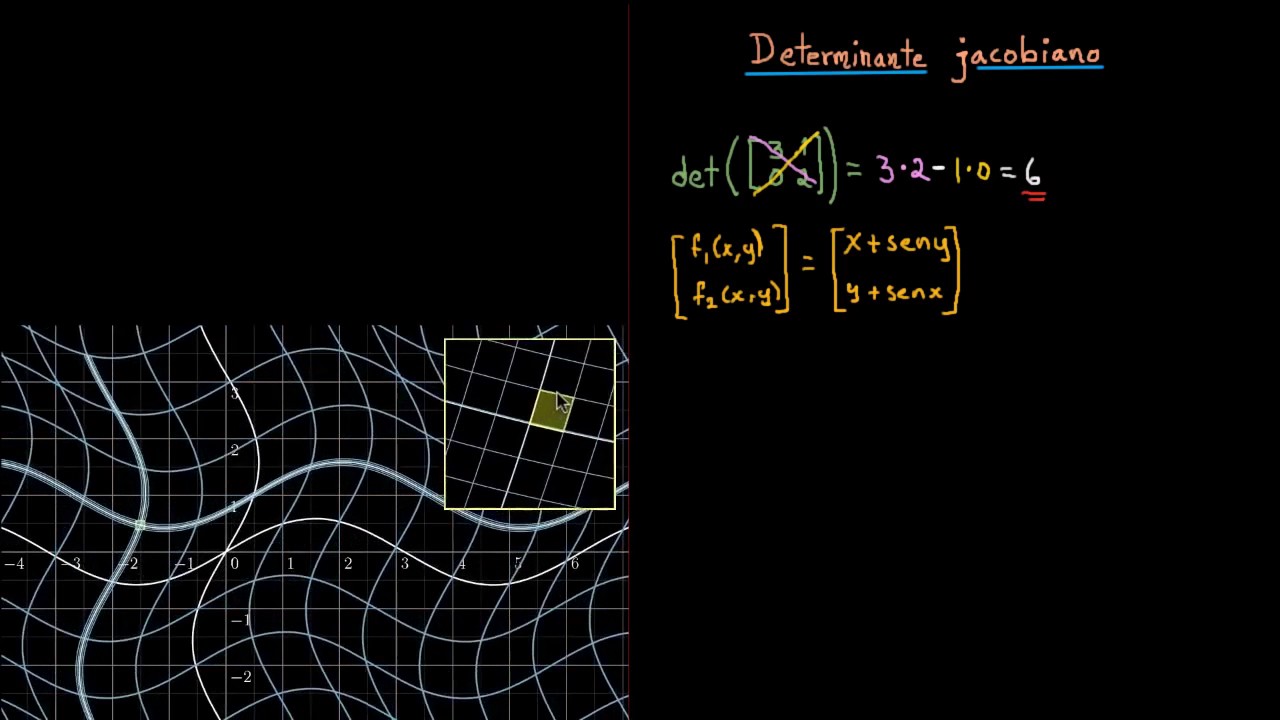 Determinante jacobiano
det([3 1
0 2]) = 3·2 - 1·0 = 6
[f₁(x,y)
f₂(x,y)] = [x + sen y
y + sen x]
3
2
1
-4 -3 -2 -1 0 1 2 3 4 5 6
-1
-2